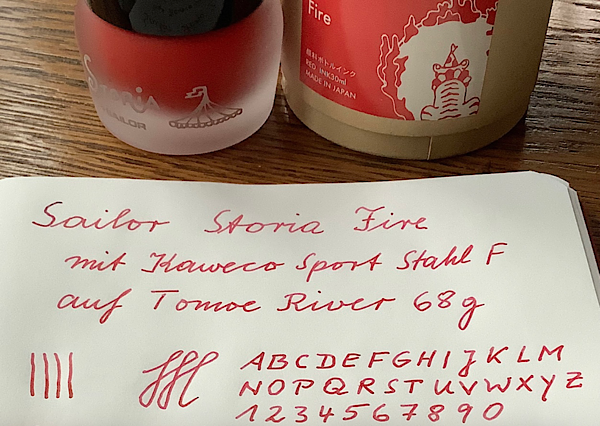 Fire
顔料ボトルインク
RED INK30ml
MADE IN JAPAN
STORIA
SAILOR
Sailor Storia Fire
mit Kaweco Sport Stahl F
auf Tomoe River 68g
ABCDEFGHIJKLM
NOPQRSTUVWXYZ
1234567890